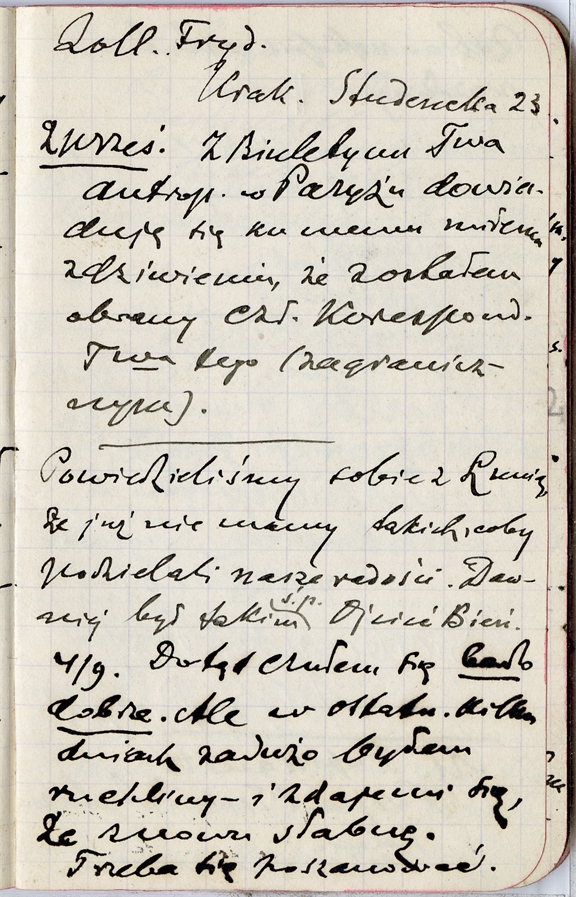 Zoll. Fryd.
Krak. Studencka 23
2 wrześ. Z Biuletynu Twa
antrop. w Paryżu dowia-
duję się ku memu miłemu
zdziwieniu, że zostałem
obrany Czł. Korespond.
Twa tego (zagranicz-
nym).
Powiedzieliśmy sobie z
że już nie mamy takich, coby
podzielali nasze radości. Daw-
niej był takim ś.p. Ojciec Bień.
4/9. Dotąd czułem się bardo
dobrze. Ale w ostatn. kilku
dniach zadużo byłem
ruchliwy – i zdaje mi się,
że znowu słabnę.
Trzeba się poszanować.